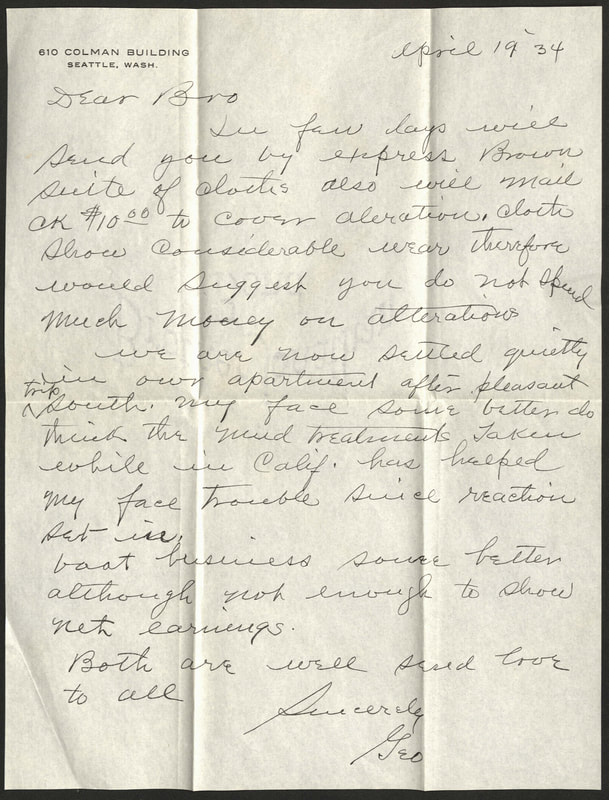 610 COLMAN BUILDING
SEATTLE, WASH.
April 19 34
Dear Bro
In few days will
send you by express Brown
suite of cloths also will mail
ck $10.00 to cover aleration. Cloth
show considerable wear therefore
would suggest you do not spend
much money on alterations
we are now settled quietly
in own apartment after pleasant
trip
South. My face some better do
think the mud treatments taken
while in Calif. has helped
my face trouble since reaction
set in.
boat business some better
although not enough to show
net earnings.
Both are well send love
to all
Sincerely
Geo